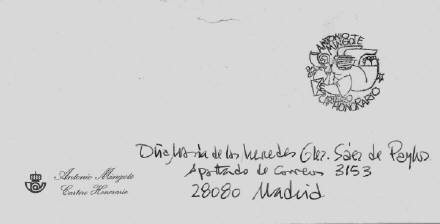 ANTONIO
MINGOTE
CARTERO HONORARIO
Dña María de las Mercedes Glez. Sáez de
Apartado de Correos 3153
28080 Madrid
Antonio Mingote
Cartero Honorario